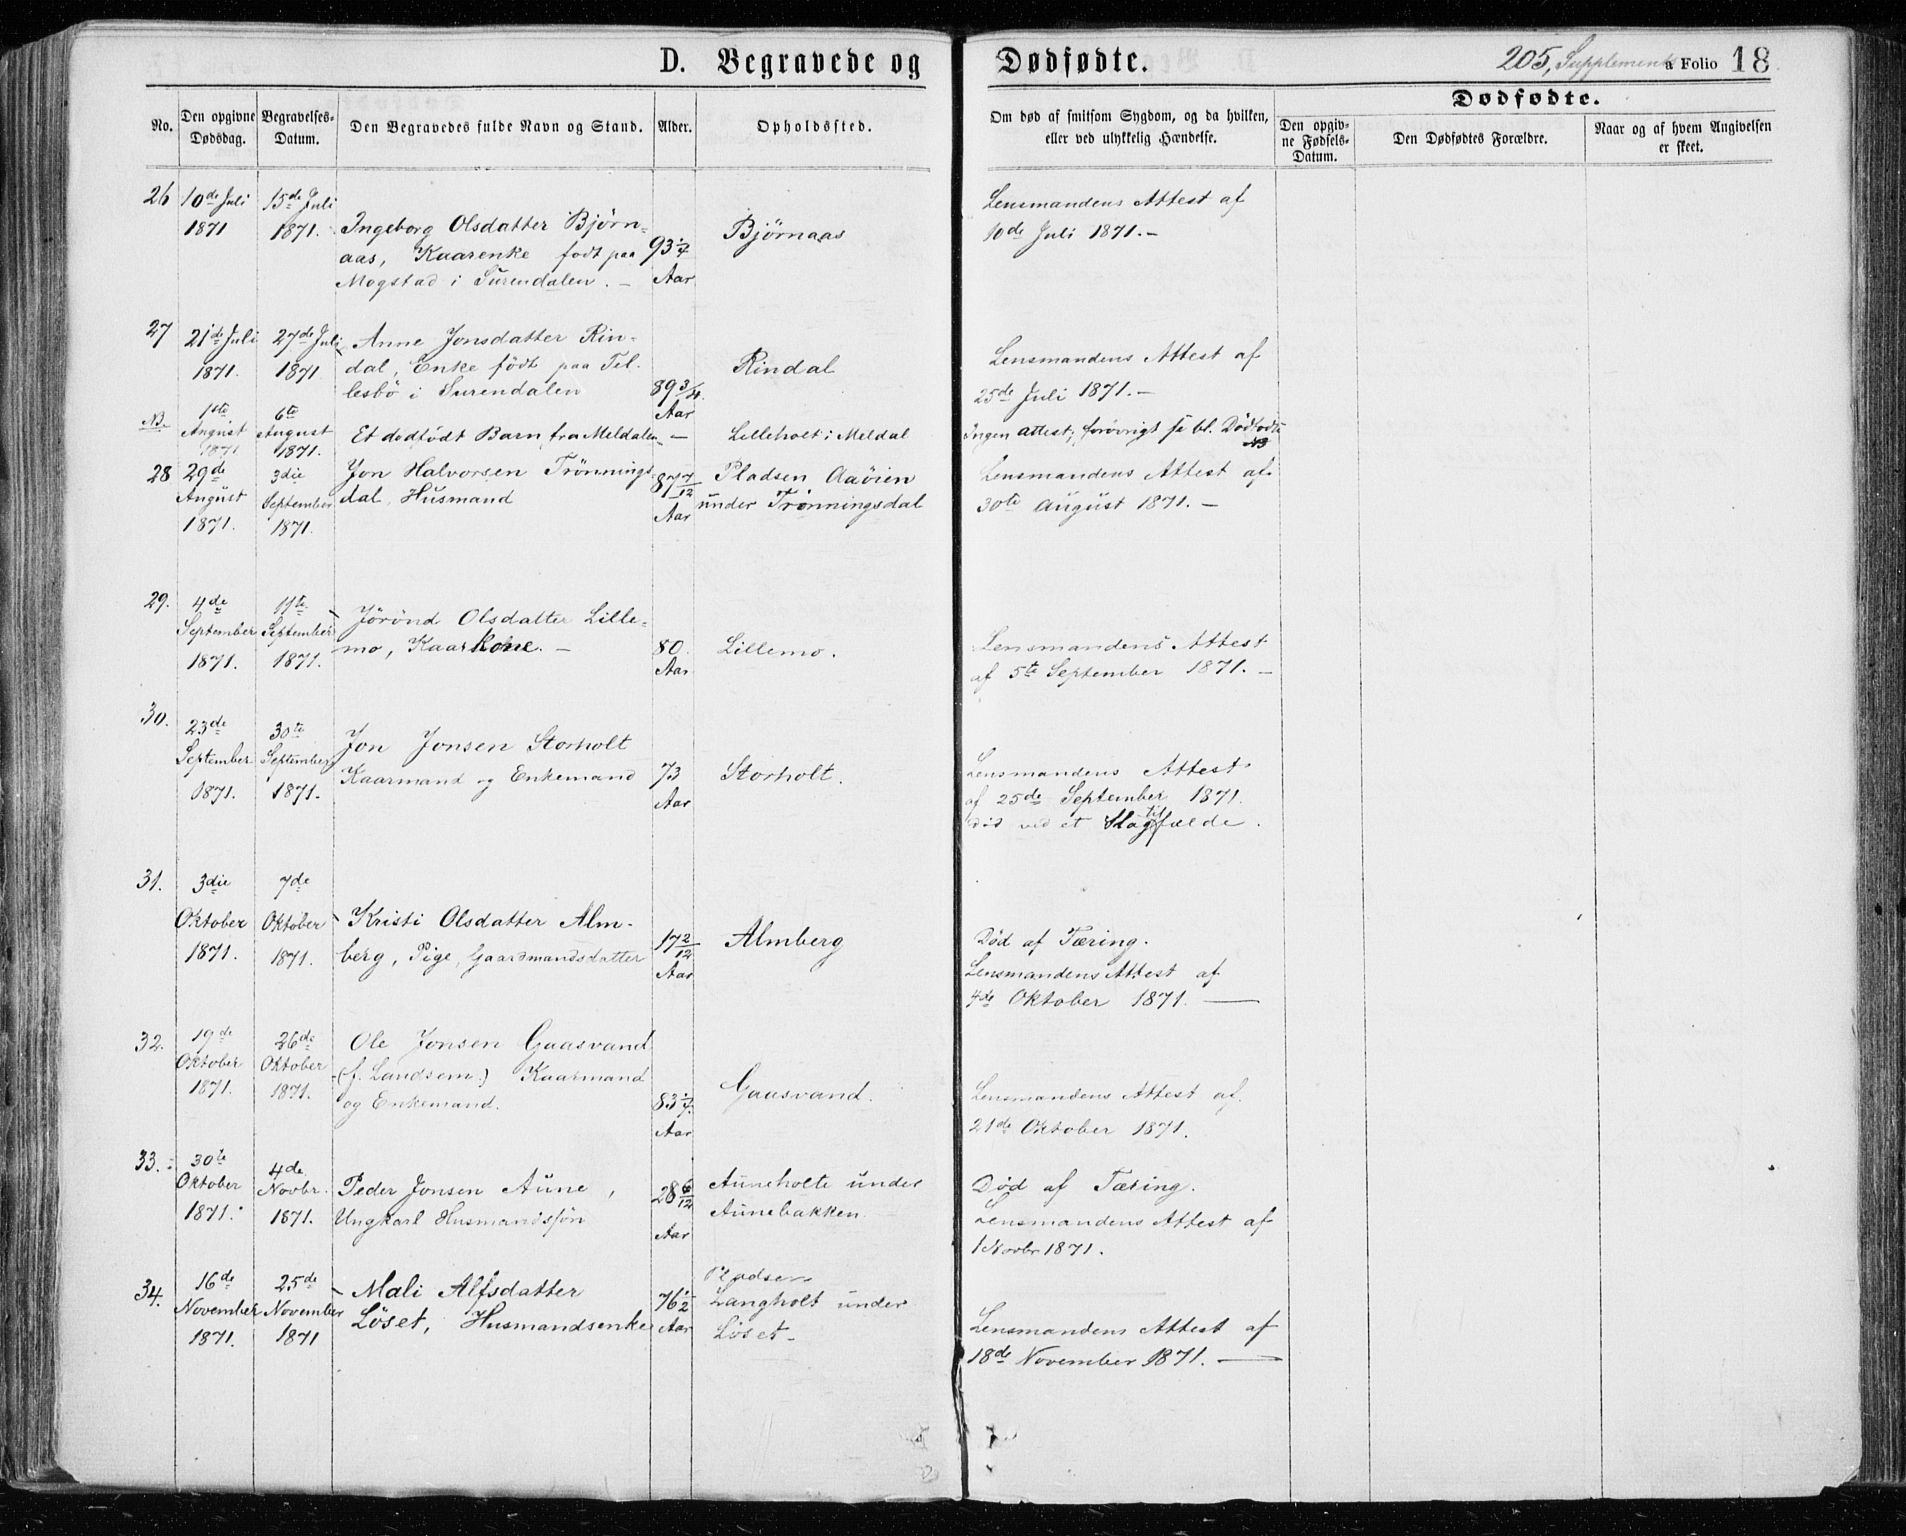 D. Begravede og Dødfødte.
205, Supplements a Folio 18
Dødfødte.
No.
Den opgivne Dødsdag.
Begravelses-Datum.
Den Begravedes fulde Navn og Stand.
Alder.
Opholdssted.
Om død af smitsom Sygdom, og da hvilken,
eller ved ulykkelig Hændelse.
Den opgiv-
ne Fødsels-
Datum.
Den Dødfødtes Forældre.
Naar og af hvem Angivelsen
er skeet.
26
10de Juli
1871
15de Juli
1871.
Ingeborg Olsdatter Bjørn-
aas, Kaarenke født paa
Mogstad i Surendalen. –
93 1/4
Aar
Bjørnaas
Lensmandens Attest af
10de Juli 1871. –
27
21de Juli
1871.
27de Juli
1871
Anne Jonsdatter Rin-
dal, Enke født paa Tel-
lesbö i Surendalen
89 3/4
Aar
Rindal
Lensmandens Attest af
25de Juli 1871. –
NB.
1ste
August
1871
6te
August
1871.
Et dødfödt Barn fra Meldalen
–
Lilleholt i Meldal
Ingen attest; forøvrigt se bl. Dödfödte
NB
28
29de
August
1871.
3die
September
1871.
Jon Halvorsen Trönnings-
dal, Husmand
87 7/12
Aar
Pladsen Aaöien
under Trönningsdal
Lensmandens Attest af
30te August 1871. –
29.
4de
September
1871.
11te
September
1871.
Jörönd Olsdatter Lille-
mo, Kaarkone. –
80.
Aar
Lillemo.
Lensmandens Attest
af 5te September 1871. –
30.
23de
September
1871.
30te
September
1871.
Jon Jonsen Storholt
Kaarmand og Enkemand
73
Aar
Storholt.
Lensmandens Attest
af 25de September 1871.
Död ved et Slagtilfælde.
31.
3die
Oktober
1871.
7de
Oktober
1871.
Kristi Olsdatter Alm-
berg, Pige, Gaardmandsdatter
17 2/12
Aar
Almberg
Död af Tæring.
Lensmandens Attest af
4de Oktober 1871. –
32.
19de
Oktober
1871.
26de
Oktober
1871.
Ole Jonsen Gaasvand
(f. Landsem.) Kaarmand
og Enkemand.
83 1/4.
Aar
Gaasvand.
Lensmandens Attest af
21de Oktober 1871.
33.
30te
Oktober
1871.
4de
Novbr.
1871.
Peder Jonsen Aune,
Ungkarl Husmandssön
28 6/12
Aar
Auneholte under
Aunebakken
Död af Tæring.
Lensmandens Attest af
1 Novbr 1871.
34.
16de
November
1871.
25de
November
1871
Mali Alfsdatter
Löset, Husmandsenke
76 1/2
Aar
Pladsen
Langholt under
Löset –
Lensmandens Attest af
18de November 1871. –